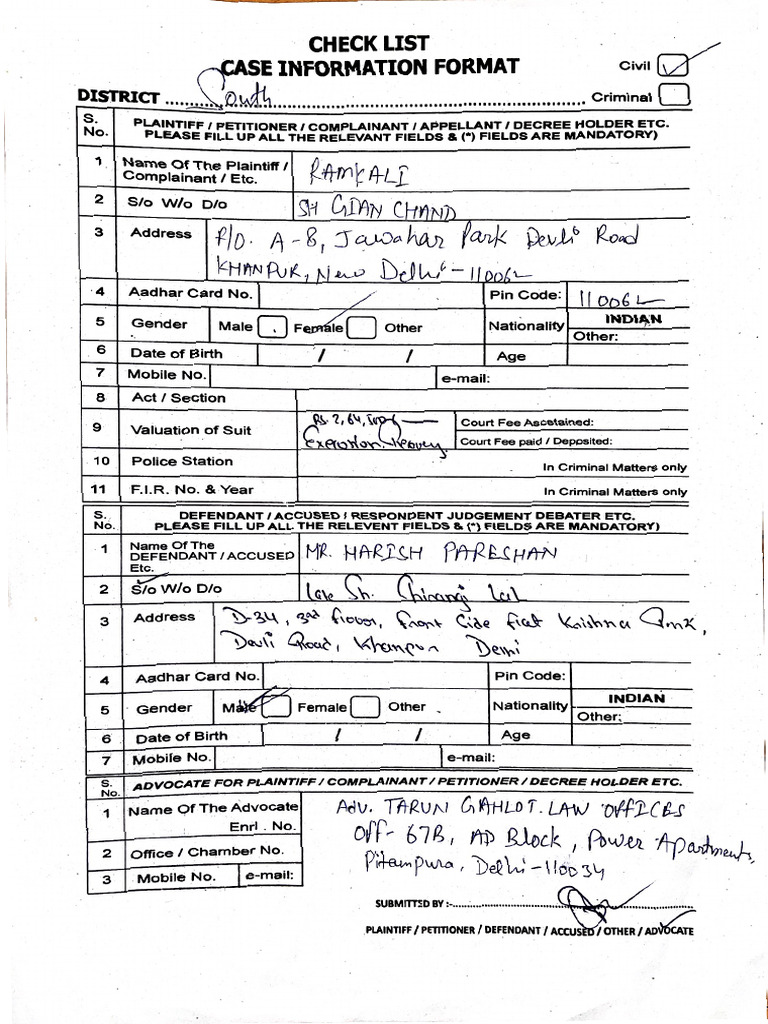 CHECK LIST
CASE INFORMATION FORMAT
Civil
DISTRICT South Criminal
S. No. PLAINTIFF / PETITIONER / COMPLAINANT / APPELLANT / DECREE HOLDER ETC.
PLEASE FILL UP ALL THE RELEVANT FIELDS & (*) FIELDS ARE MANDATORY)
1 Name Of The Plaintiff / Complainant / Etc. RAMKALI
2 S/o W/o D/o SH GIAN CHAND
3 Address R/O. A-8, Jawahar Park Devli Road
KHANPUR, New Delhi-110062
4 Aadhar Card No. Pin Code: 110062
5 Gender Male Female Other Nationality INDIAN
Other:
6 Date of Birth / / Age
7 Mobile No. e-mail:
8 Act / Section
9 Valuation of Suit Rs. 2,64, Court Fee Ascetained:
Execution Court Fee paid / Deposited:
10 Police Station In Criminal Matters only
11 F.I.R. No. & Year In Criminal Matters only
S. No. DEFENDANT / ACCUSED / RESPONDENT JUDGEMENT DEBATER ETC.
PLEASE FILL UP ALL THE RELEVENT FIELDS & (*) FIELDS ARE MANDATORY)
1 Name Of The DEFENDANT / ACCUSED Etc. MR. HARISH PARESHAN
2 S/o W/o D/o Late Sh. Chiranji Lal
3 Address D-34, 3rd Floor, Front Side Flat Krishna
Devli Road, Khanpur Delhi
4 Aadhar Card No. Pin Code:
5 Gender Male Female Other Nationality INDIAN
Other:
6 Date of Birth / / Age
7 Mobile No. e-mail:
S. No. ADVOCATE FOR PLAINTIFF / COMPLAINANT / PETITIONER / DECREE HOLDER ETC.
1 Name Of The Advocate Adv. TARUN GAHLOT. LAW OFFICES
Enrl . No. Off- 67B, AD Block, Power Apartments,
2 Office / Chamber No. Pitampura, Delhi-110034
3 Mobile No. e-mail:
SUBMITTED BY :-
PLAINTIFF / PETITIONER / DEFENDANT / ACCUSED / OTHER / ADVOCATE